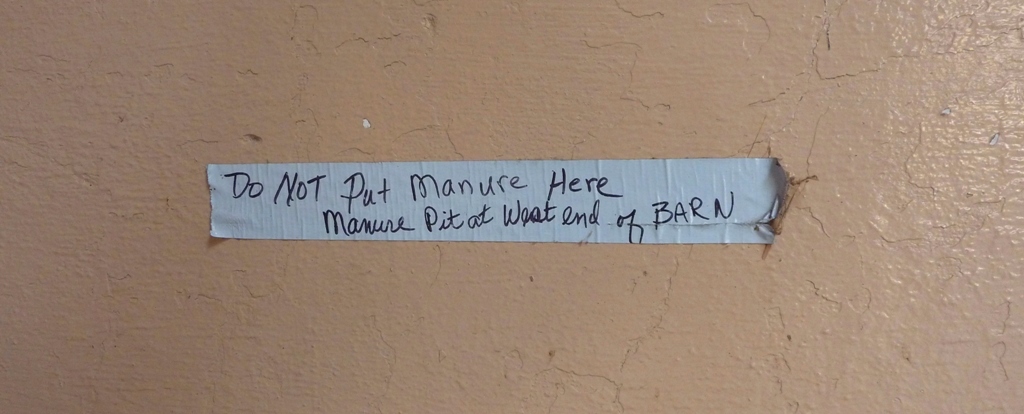 Do NOT Put Manure Here
Manure Pit at West end of BARN